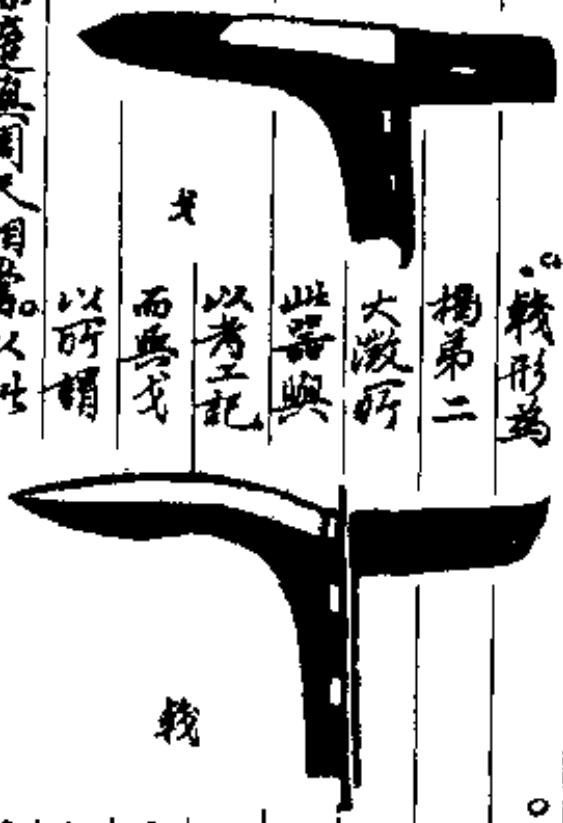 戟形為
揭第二
大澂所
此器與
以考工記
而與戈
以所謂
戈
戟